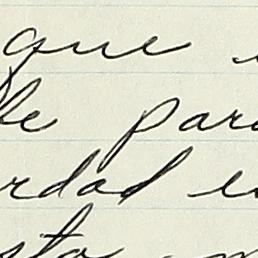 que
le par
rdad e
sto